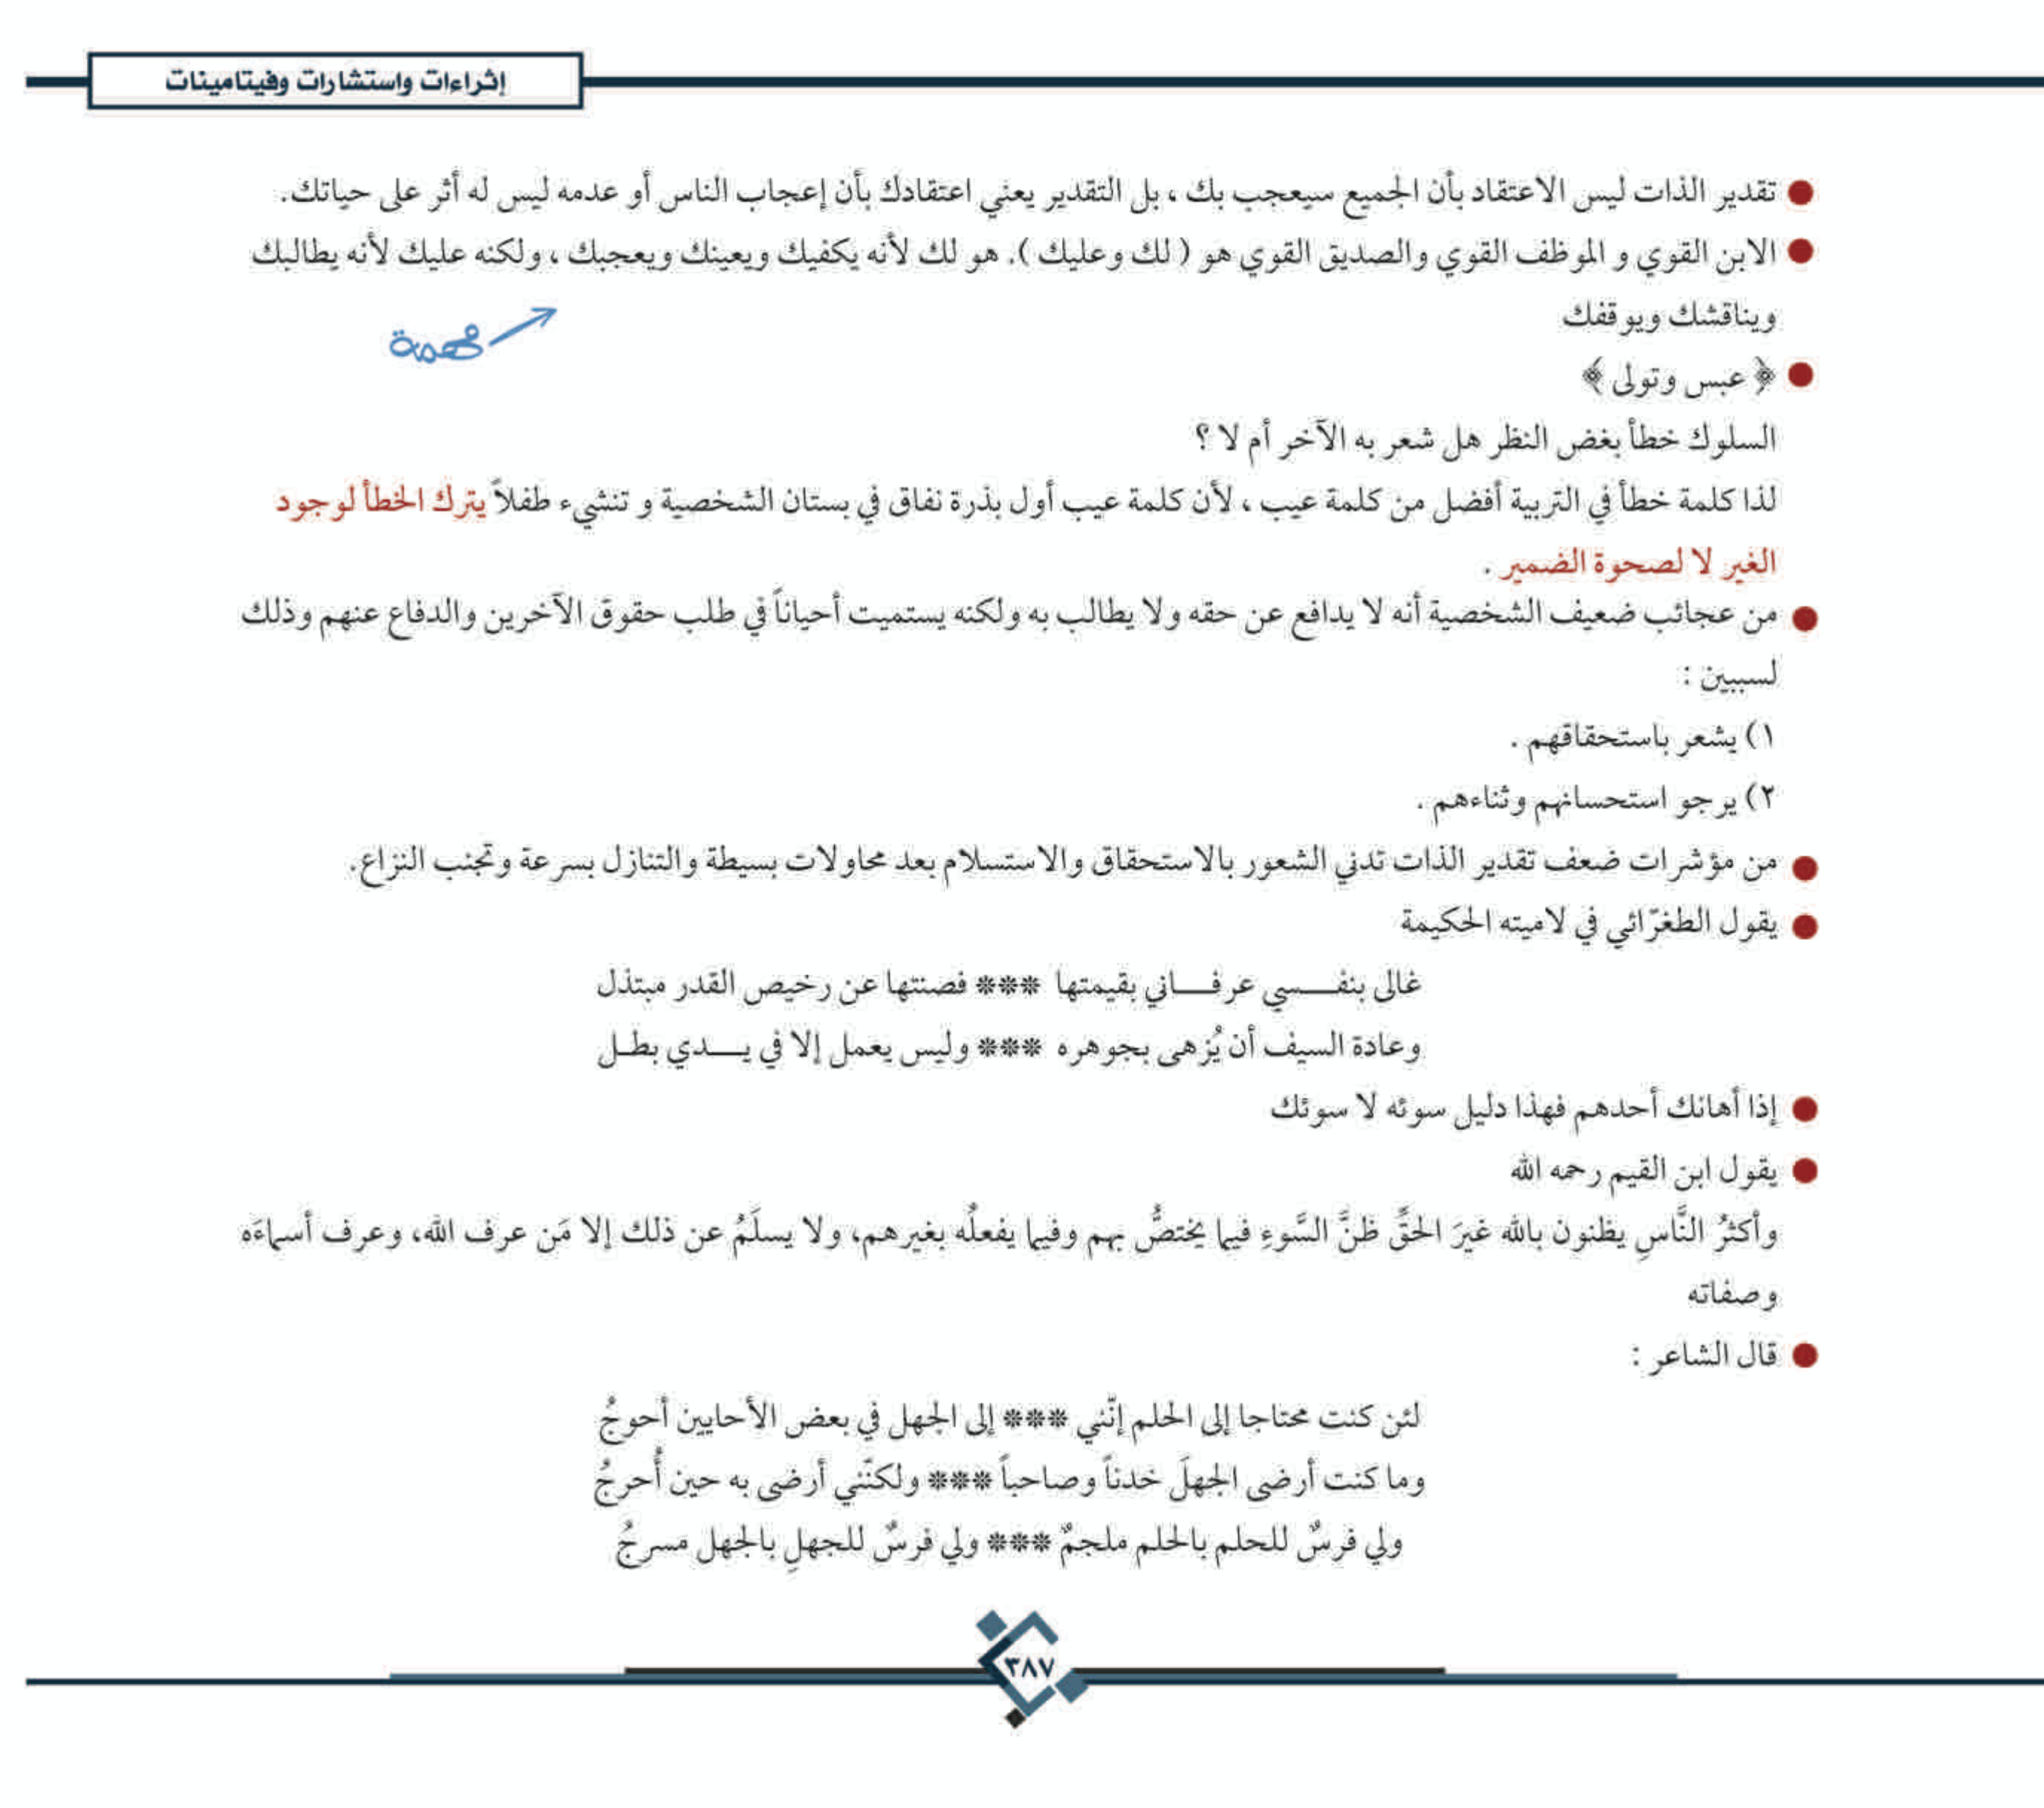 إثراءات واستشارات وفيتامينات
تقدير الذات ليس الاعتقاد بأن الجميع سيعجب بك ، بل التقدير يعني اعتقادك بأن إعجاب الناس أو عدمه ليس له أثر على حياتك.
الابن القوي و الموظف القوي والصديق القوي هو ( لك وعليك ). هو لك لأنه يكفيك ويعينك ويعجبك ، ولكنه عليك لأنه يطالبك
ويناقشك ويوقفك
مهمة
﴿ عبس وتولى ﴾
السلوك خطأ بغض النظر هل شعر به الآخر أم لا ؟
لذا كلمة خطأ في التربية أفضل من كلمة عيب ، لأن كلمة عيب أول بذرة نفاق في بستان الشخصية و تنشيء طفلاً يترك الخطأ لوجود
الغير لا لصحوة الضمير .
من عجائب ضعيف الشخصية أنه لا يدافع عن حقه ولا يطالب به ولكنه يستميت أحياناً في طلب حقوق الآخرين والدفاع عنهم وذلك
لسببين :
١) يشعر باستحقاقهم .
٢) يرجو استحسانهم وثناءهم .
من مؤشرات ضعف تقدير الذات تدني الشعور بالاستحقاق والاستسلام بعد محاولات بسيطة والتنازل بسرعة وتجنب النزاع.
يقول الطغرّائي في لاميته الحكيمة
غالى بنفـــسي عرفـــاني بقيمتها *** فصنتها عن رخيص القدر مبتذل
وعادة السيف أن يُزهى بجوهره *** وليس يعمل إلا في يـــدي بطـل
إذا أهانك أحدهم فهذا دليل سوئه لا سوئك
يقول ابن القيم رحمه الله
وأكثرُ النَّاسِ يظنون بالله غيرَ الحقِّ ظنَّ السَّوءِ فيما يختصُّ بهم وفيما يفعلُه بغيرهم، ولا يسلَمُ عن ذلك إلا مَن عرف الله، وعرف أسماءَه
وصفاته
قال الشاعر :
لئن كنت محتاجا إلى الحلم إنّني *** إلى الجهل في بعض الأحايين أحوجُ
وما كنت أرضى الجهلَ خدناً وصاحباً *** ولكنّني أرضى به حين أُحرجُ
ولي فرسٌ للحلم بالحلم ملجمٌ *** ولي فرسٌ للجهلِ بالجهل مسرجُ
٣٨٧